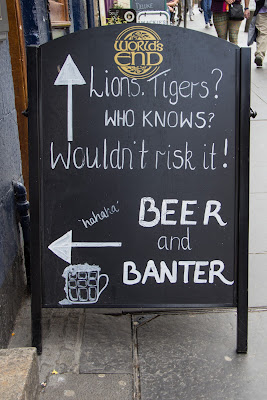 WORLD'S
END
Lions. Tigers?
WHO KNOWS?
Wouldn't risk it!
'hahaha'
BEER
and
BANTER